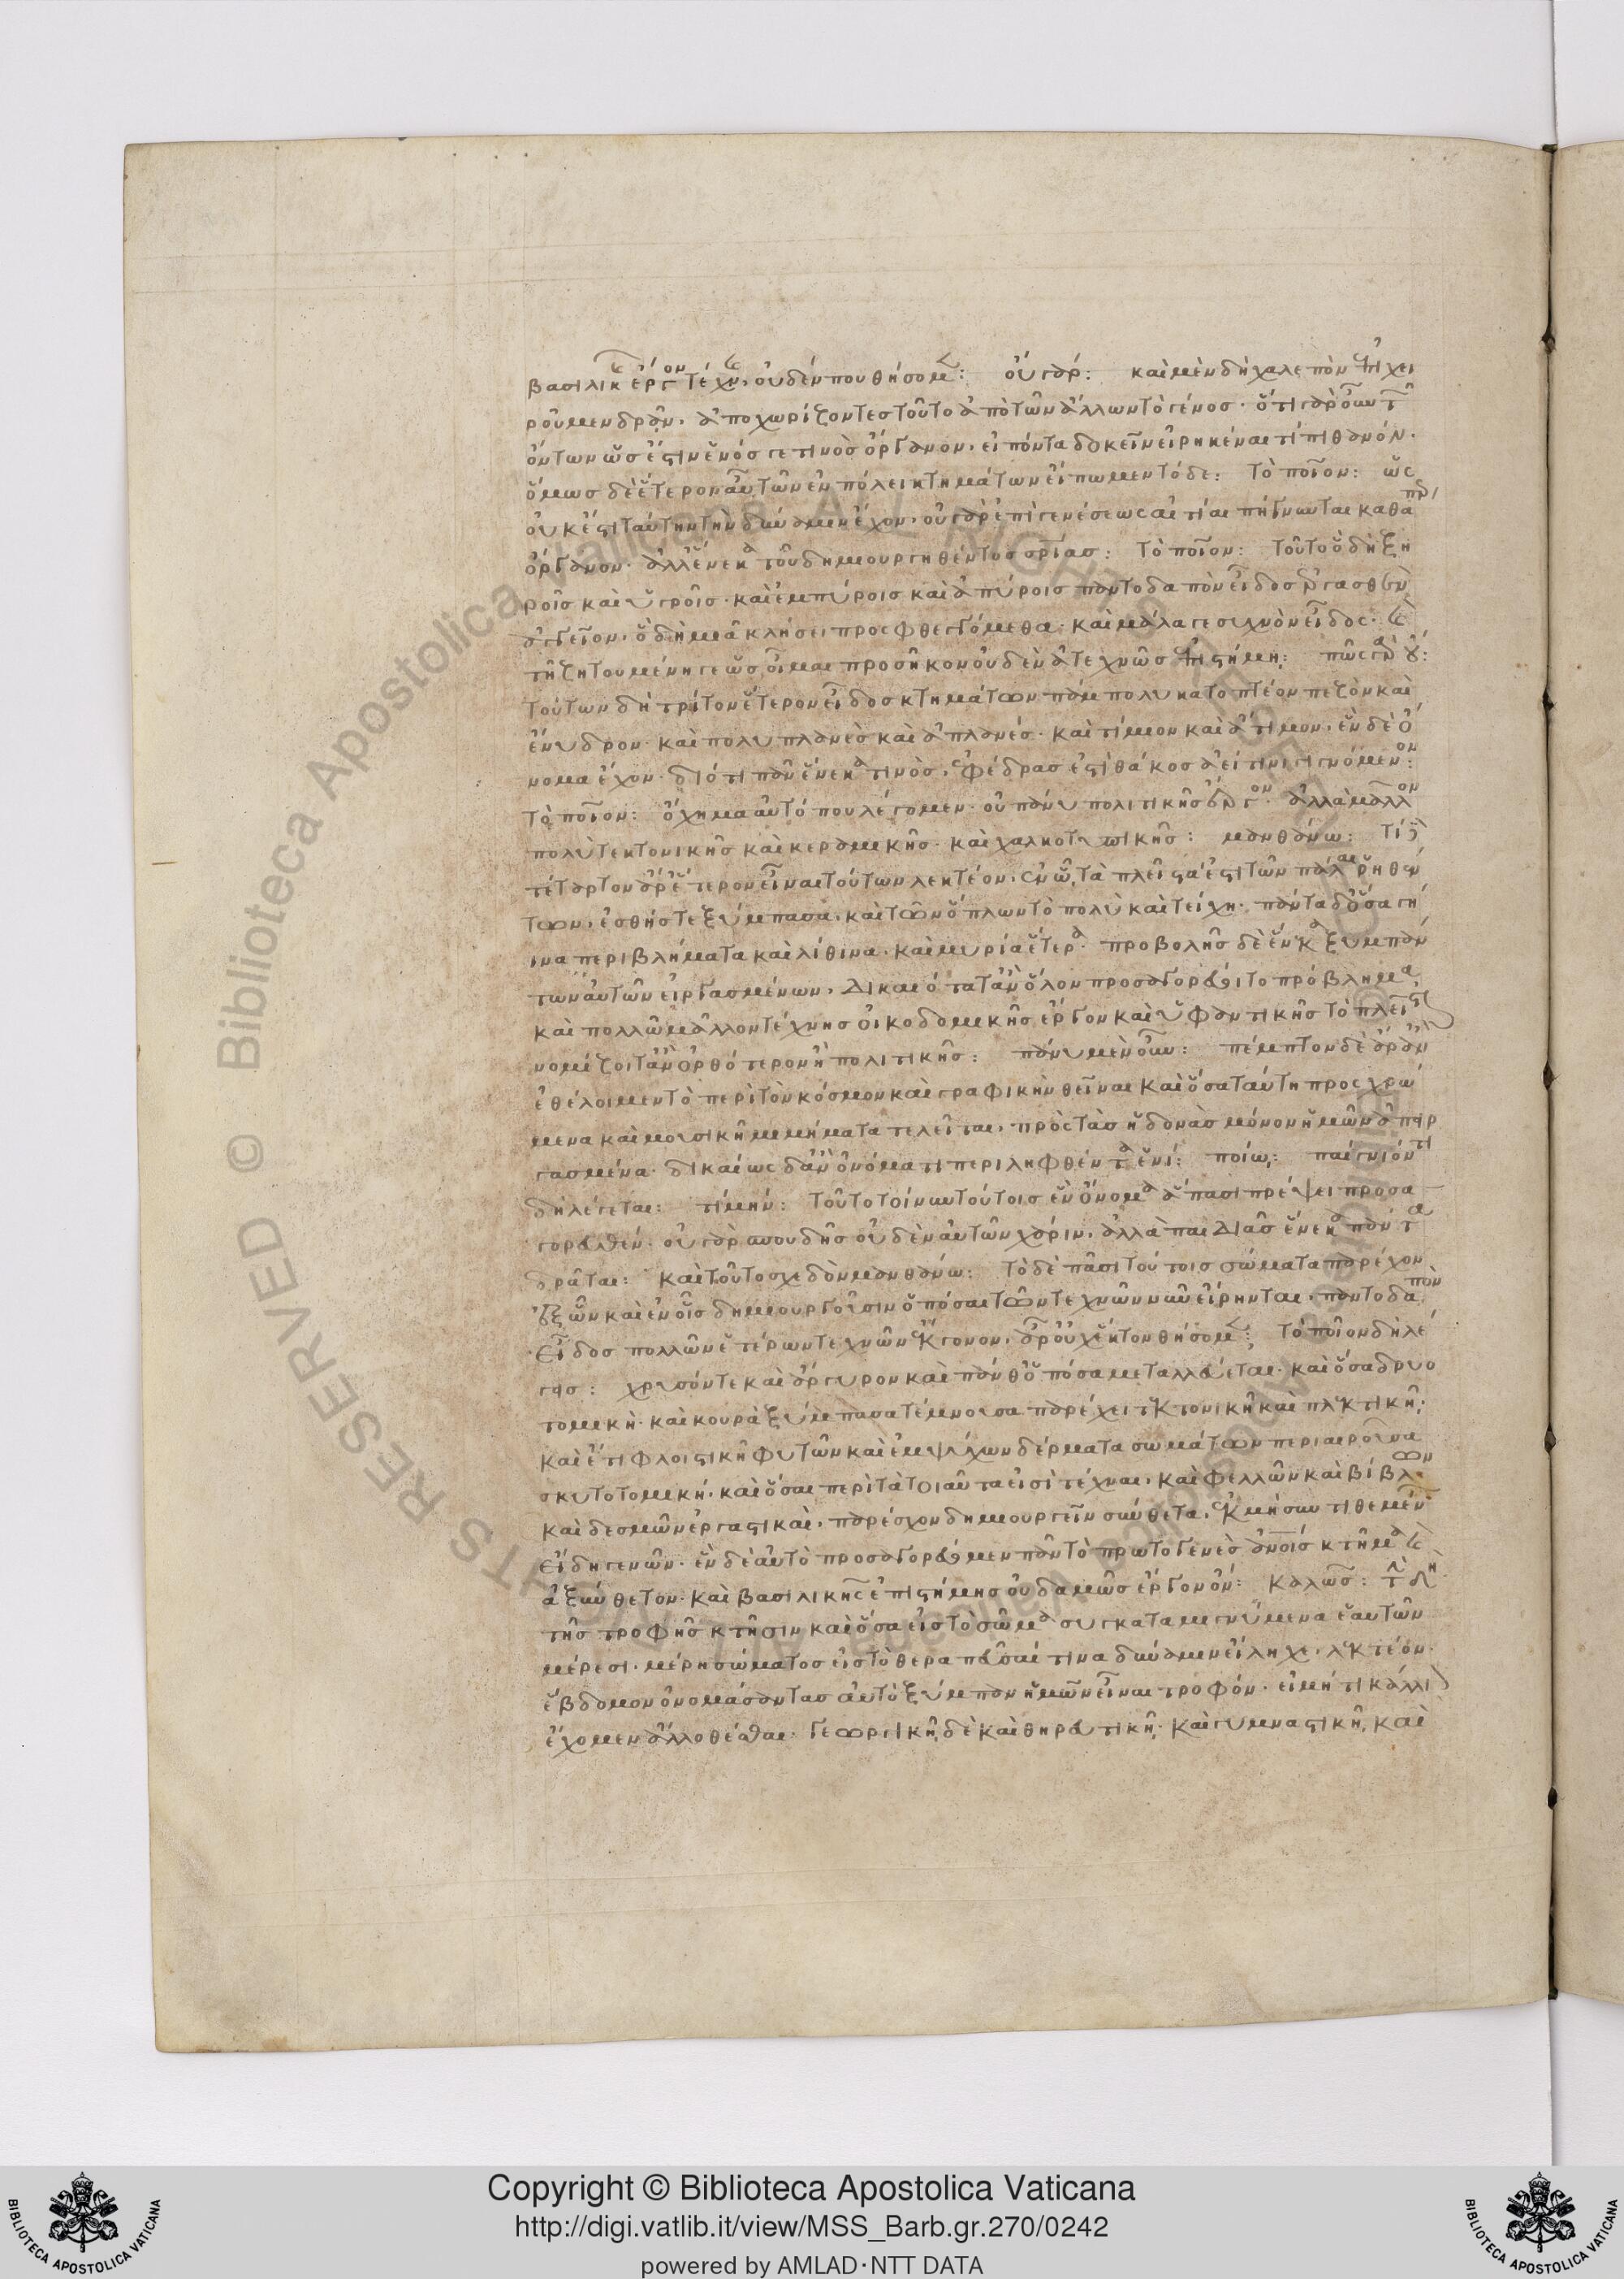 βασιλικῆς ἔργον τέχνης, οὐδὲν που θήσομεν: οὐ γάρ: καὶ μὲν δὴ χαλεπὸν ἐπιχει
ροῦμεν δρᾶν, ἀποχωρίζοντες τοῦτο ἀπὸ τῶν ἄλλων τὸ γένος· ὅτι γὰρ οὖν τῶν
ὄντων ὡς ἔστιν ἑνός γέ τινος ὄργανον, εἰπόντα δοκεῖν εἰρηκέναι τί πιθανόν·
ὅμως δὲ ἕτερον αὖ τῶν ἐν πόλει κτημάτων εἴπωμεν τόδε: τὸ ποῖον: ὡς
οὐκ ἔστι ταύτην τὴν δύναμιν ἔχον, οὐ γὰρ ἐπὶ γενέσεως αἰτίαι πήγνυται καθάπερ
ὄργανον· ἀλλ' ἕνεκα τοῦ δημιουργηθέντος σωτηρίας: τὸ ποῖον: τοῦτο ὃ δὴ ξη
ροῖς καὶ ὑγροῖς· καὶ ἐμπύροις καὶ ἀπύροις παντοδαπὸν εἶδος ἐργασθὲν
ἀγγεῖον, ὃ δὴ μιᾷ κλήσει προσφθεγγόμεθα· καὶ μάλα γε συχνὸν εἶδος· καὶ
τῇ ζητουμένῃ γε ὡς οἶμαι προσῆκον οὐδὲν ἀτεχνῶς ἐπιστήμῃ: πῶς γὰρ οὔ:
τούτων δὴ τρίτον ἕτερον εἶδος κτημάτων πάμπολυ κατοπτέον πεζὸν καὶ
ἔνυδρον· καὶ πολυπλανὲς καὶ ἀπλανές· καὶ τίμιον καὶ ἄτιμον, ἓν δὲ ὄ
νομα ἔχον· διότι πᾶν ἕνεκά τινος, ἐφέδρας ἐστὶ θᾶκος ἀεί τινι γιγνόμενον:
τὸ ποῖον: ὄχημα αὐτό που λέγομεν· οὐ πάνυ πολιτικῆς ἔργον· ἀλλὰ μᾶλλον
πολὺ τεκτονικῆς καὶ κεραμικῆς· καὶ χαλκοτυπικῆς: μανθάνω: τί δὲ
τέταρτον ἆρ' ἕτερον εἶναι τούτων λεκτέον, ἐν ᾧ τὰ πλεῖστά ἐστι τῶν πάλαι ῥηθέν
των, ἐσθής τε ξύμπασα, καὶ τῶν ὅπλων τὸ πολὺ καὶ τείχη· πάντα δ' ὅσα γή
ινα περιβλήματα καὶ λίθινα· καὶ μυρία ἕτερα· προβολῆς δὲ ἕνεκα ξυμπάν
των αὐτῶν εἰργασμένων, δικαιότατ' ἂν ὅλον προσαγορεύοιτο πρόβλημα,
καὶ πολλῷ μᾶλλον τέχνης οἰκοδομικῆς ἔργον καὶ ὑφαντικῆς τὸ πλεῖστον
νομίζοιτ' ἂν ὀρθότερον ἢ πολιτικῆς: πάνυ μὲν οὖν: πέμπτον δὲ ἆρ' ἂν
ἐθέλοιμεν τὸ περὶ τὸν κόσμον καὶ γραφικὴν θεῖναι καὶ ὅσα ταύτῃ προσχρώ
μενα καὶ μουσικῇ μιμήματα τελεῖται, πρὸς τὰς ἡδονὰς μόνον ἡμῶν ἀπειρ
γασμένα· δικαίως δ' ἂν ὀνόματι περιληφθέντα ἑνί: ποίῳ: παίγνιόν τι
δὴ λέγεται: τί μήν: τοῦτο τοίνυν τούτοις ἓν ὄνομα ἅπασι πρέψει προσα
γορευθέν· οὐ γὰρ σπουδῆς οὐδὲν αὐτῶν χάριν, ἀλλὰ παιδιᾶς ἕνεκα πάντα
δρᾶται: καὶ τοῦτο σχεδὸν μανθάνω: τὸ δὲ πᾶσι τούτοις σώματα παρέχον
ἐξ ὧν καὶ ἐν οἷς δημιουργοῦσιν ὁπόσαι τῶν τεχνῶν νῦν εἴρηνται, παντοδαπὸν
εἶδος πολλῶν ἑτέρων τεχνῶν ἔκγονον, ἆρ' οὐχ ἕκτον θήσομεν: τὸ ποῖον δὴ λέ
γεις: χρυσόν τε καὶ ἄργυρον καὶ πάνθ' ὁπόσα μεταλλεύεται· καὶ ὅσα δρυο
τομικὴ· καὶ κουρὰ ξύμπασα τέμνουσα παρέχει τεκτονικῇ καὶ πλεκτικῇ,
καὶ ἔτι φλοιστικὴ φυτῶν καὶ ἐμψύχων δέρματα σωμάτων περιαιροῦσα
σκυτοτομική· καὶ ὅσαι περὶ τὰ τοιαῦτά εἰσι τέχναι, καὶ φελλῶν καὶ βίβλων
καὶ δεσμῶν ἐργαστικαί, παρέσχον δημιουργεῖν σύνθετα, ἐκ μὴ συντιθεμένων
εἴδη γενῶν· ἓν δὲ αὐτὸ προσαγορεύομεν πᾶν τὸ πρωτογενὲς ἀνθρώποις κτῆμα καὶ
ἀξύνθετον· καὶ βασιλικῆς ἐπιστήμης οὐδαμῶς ἔργον ὄν: καλῶς: τὴν δὴ
τῆς τροφῆς κτῆσιν καὶ ὅσα εἰς τὸ σῶμα συγκαταμιγνύμενα ἑαυτῶν
μέρεσι· μέρη σώματος εἰς τὸ θεραπεῦσαί τινα δύναμιν εἴληχε, λεκτέον·
ἕβδομον ὀνομάσαντας αὐτὸ ξύμπαν ἡμῶν εἶναι τροφόν· εἰ μή τι κάλλιον
ἔχομεν ἄλλο θέσθαι· γεωργικῇ δὲ καὶ θηρευτικῇ· καὶ γυμναστικῇ, καὶ
Copyright © Biblioteca Apostolica Vaticana
http://digi.vatlib.it/view/MSS_Barb.gr.270/0242
powered by AMLAD·NTT DATA